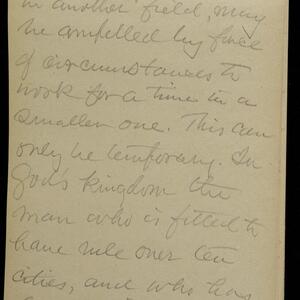 in another field, may
be compelled by force
of circumstances to
work for a time in a
smaller one. This can
only be temporary. In
God's kingdom the
man who is fitted to
have rule over ten
cities, and who has